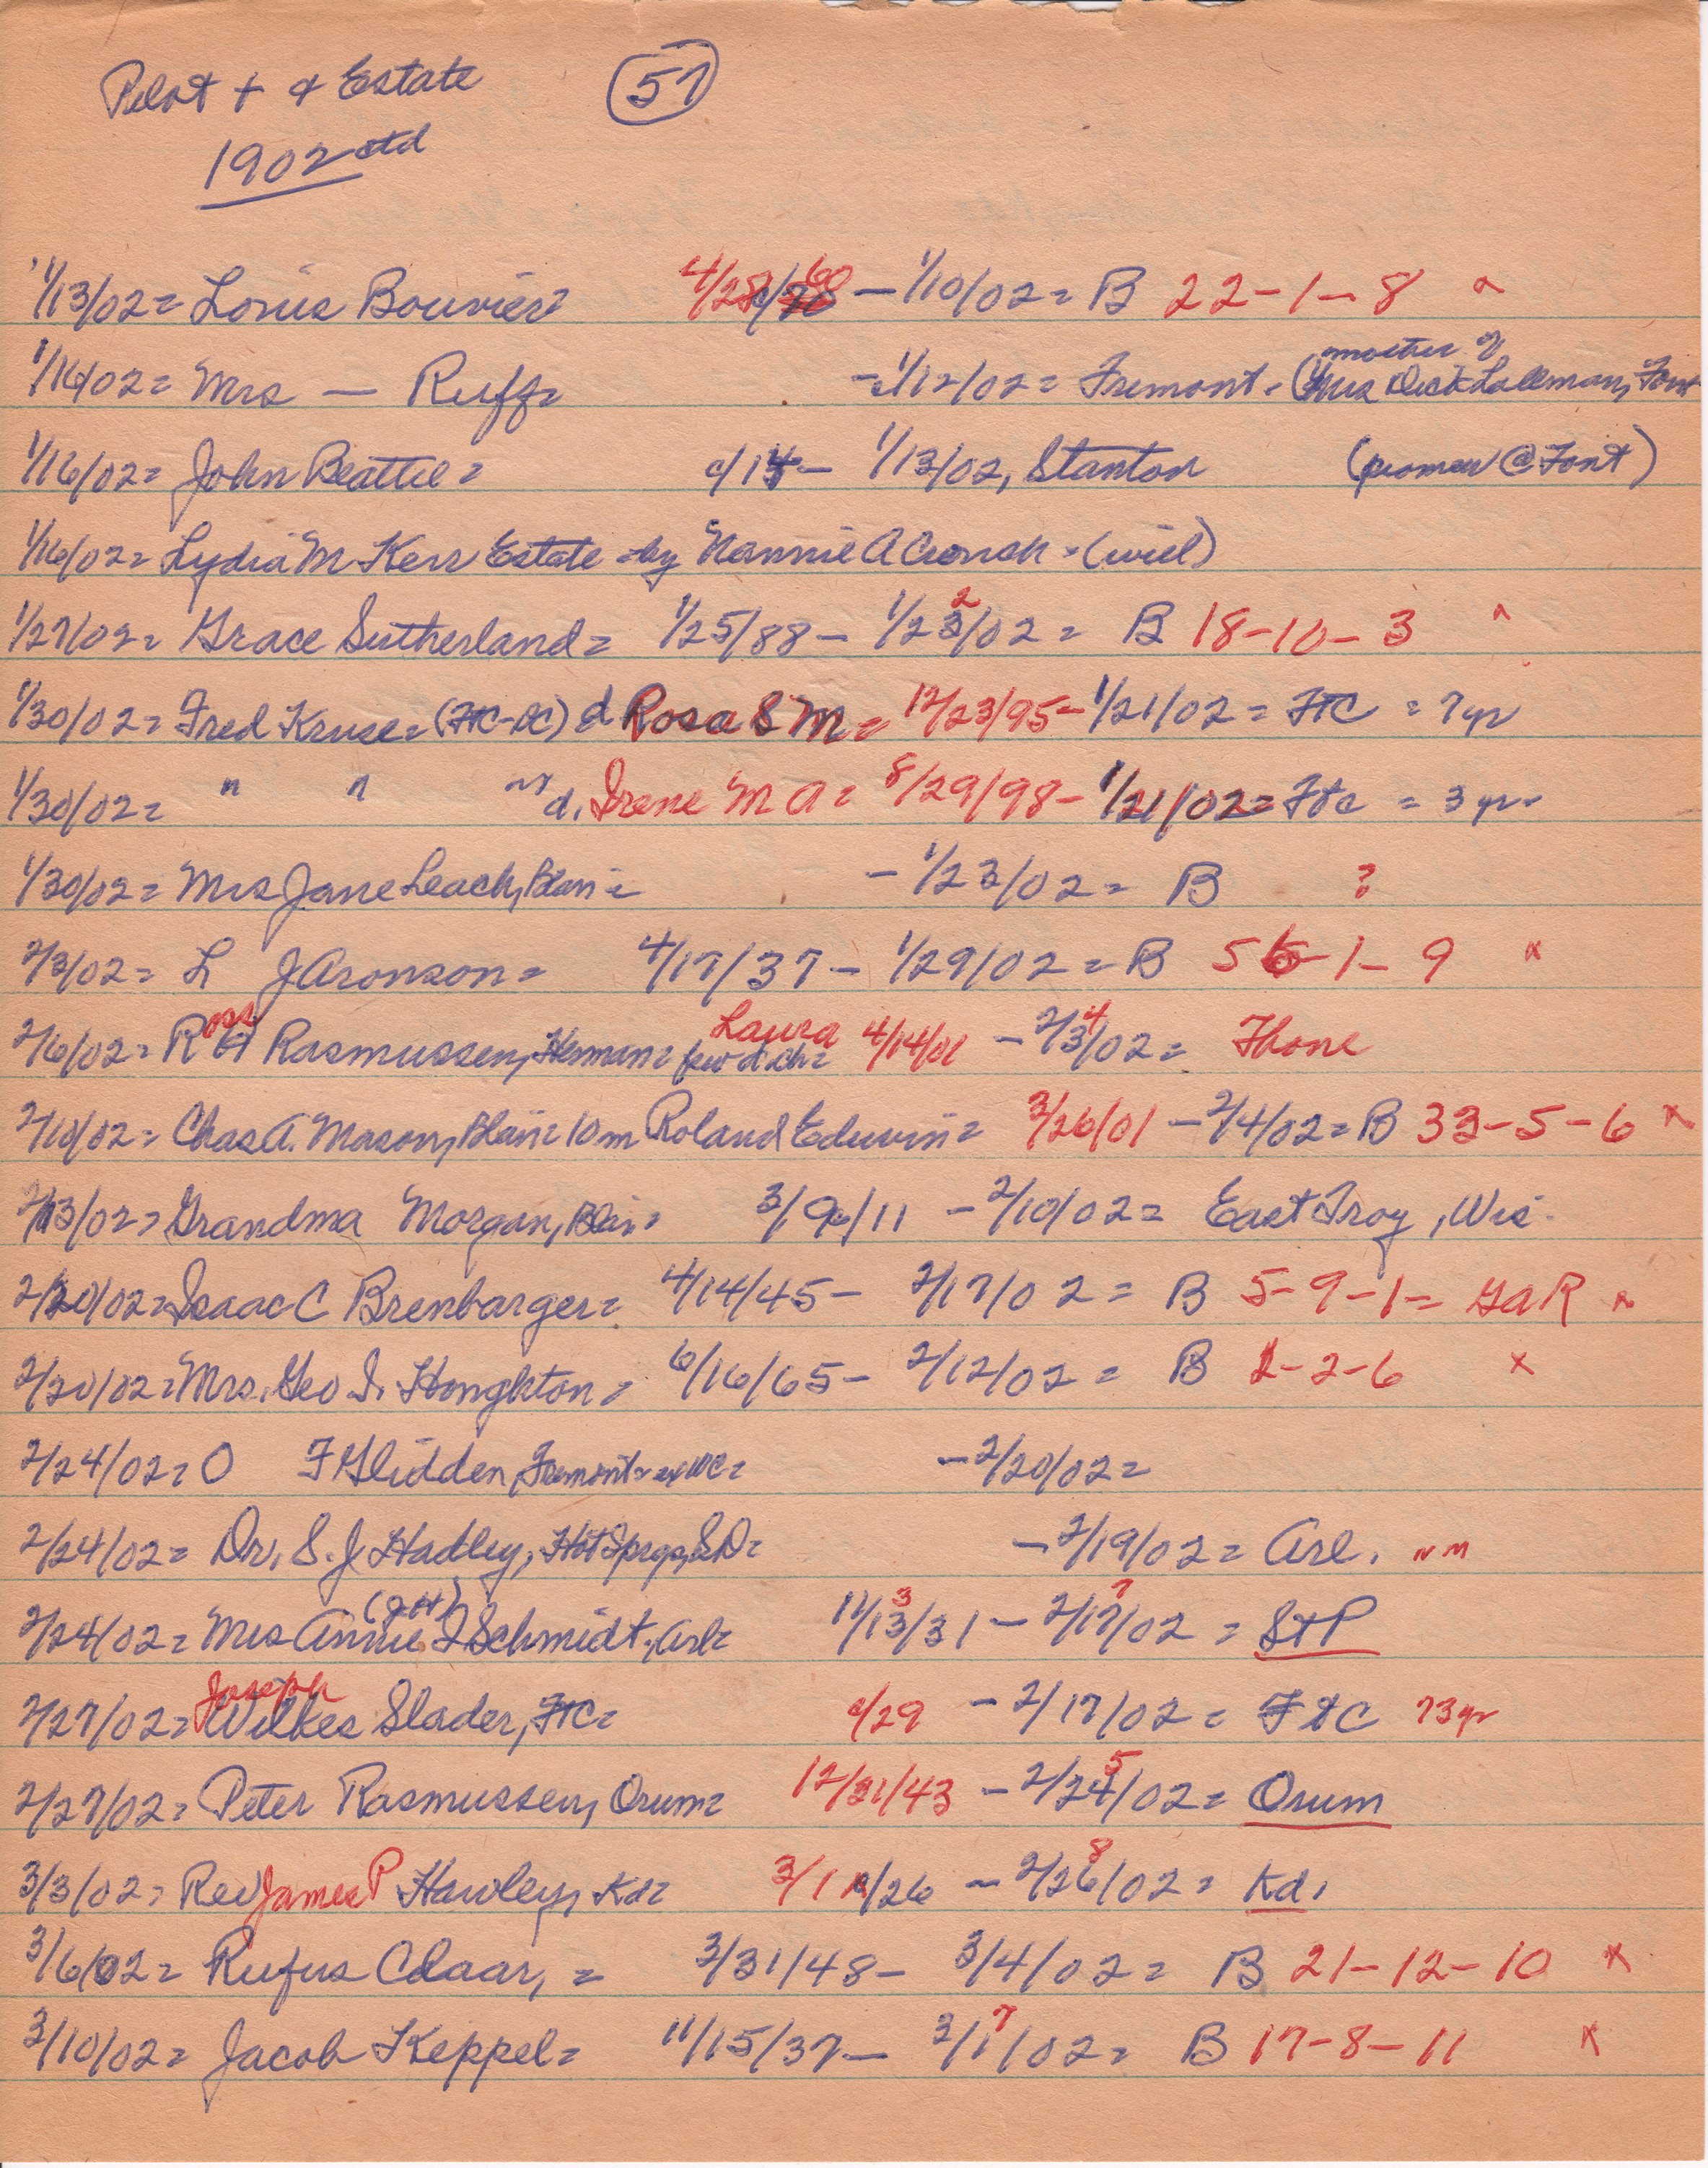 Pilot + & Estate (57)
1902 ctd
1/13/02 = Louis Bouvier = 4/28/60 – 1/10/02 = B 22-1-8 x
1/16/02 = Mrs — Ruff = – 1/12/02 = Fremont. (mother of Mrs Dick Lallman, Font
1/16/02 = John Beattie = c/14 – 1/13/02, Stanton (pioneer @ Font)
1/16/02 = Lydia M Kerr Estate – by Nannie A Crouch – (will)
1/27/02 = Grace Sutherland = 1/25/88 – 1/22/02 = B 18-10-3 x
1/30/02 = Fred Kruse = (FtC-DC) d Rosa S M = 12/23/95 – 1/21/02 = FtC = 7 yr
1/30/02 = " " d. Irene M A = 8/29/98 – 1/21/02 = Ftc = 3 yr
1/30/02 = Mrs Jane Leach, Blair = – 1/23/02 = B ?
2/3/02 = L J Aronson = 4/17/37 – 1/29/02 = B 56-1-9 x
2/6/02 = Ross H Rasmussen, Herman = few d ch = Laura 4/14/01 – 2/4/02 = Fhone
2/10/02 = Chas A. Mason, Blair = 10m Roland Edwin = 3/26/01 – 2/4/02 = B 33-5-6 x
2/13/02 = Grandma Morgan, Blair = 3/9/11 – 2/10/02 = East Troy, Wis.
2/20/02 = Isaac C Brenbarger = 4/14/45 – 2/17/02 = B 5-9-1 = GAR x
2/20/02 = Mrs. Geo I. Houghton = 6/16/65 – 2/12/02 = B 1-2-6 x
2/24/02 = O F Glidden, Fremont = ex WC = – 2/20/02 =
2/24/02 = Dr. S. J. Hadley, Hot Sprgs, SD = – 2/19/02 = Arl. nm
2/24/02 = Mrs Annie I (J H) Schmidt, Arl = 11/13/31 – 2/17/02 = StP
2/27/02 = Joseph Wilkes Slader, FtC = c/29 – 2/17/02 = FtC 73 yr
2/27/02 = Peter Rasmussen, Orum = 12/21/43 – 2/25/02 = Orum
3/3/02 = Rev James P Hawley, Kd = 3/1/26 – 2/28/02 = Kd.
3/6/02 = Rufus Claar, = 3/31/48 – 3/4/02 = B 21-12-10 x
3/10/02 = Jacob Keppel = 11/15/37 – 3/7/02 = B 17-8-11 x